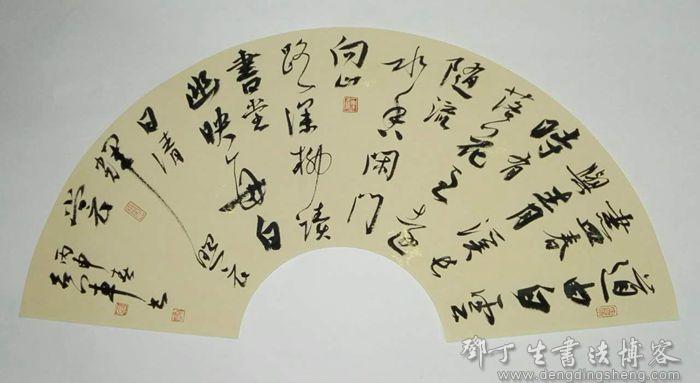 道由白雲
盡春
與青溪長
時有
落花至遠
隨流
水香閑門
向山
路深柳讀
書堂
幽映每白
日清
輝照衣
裳
丙申
軍書
鄧丁生書法博客
www.dengdingsheng.com